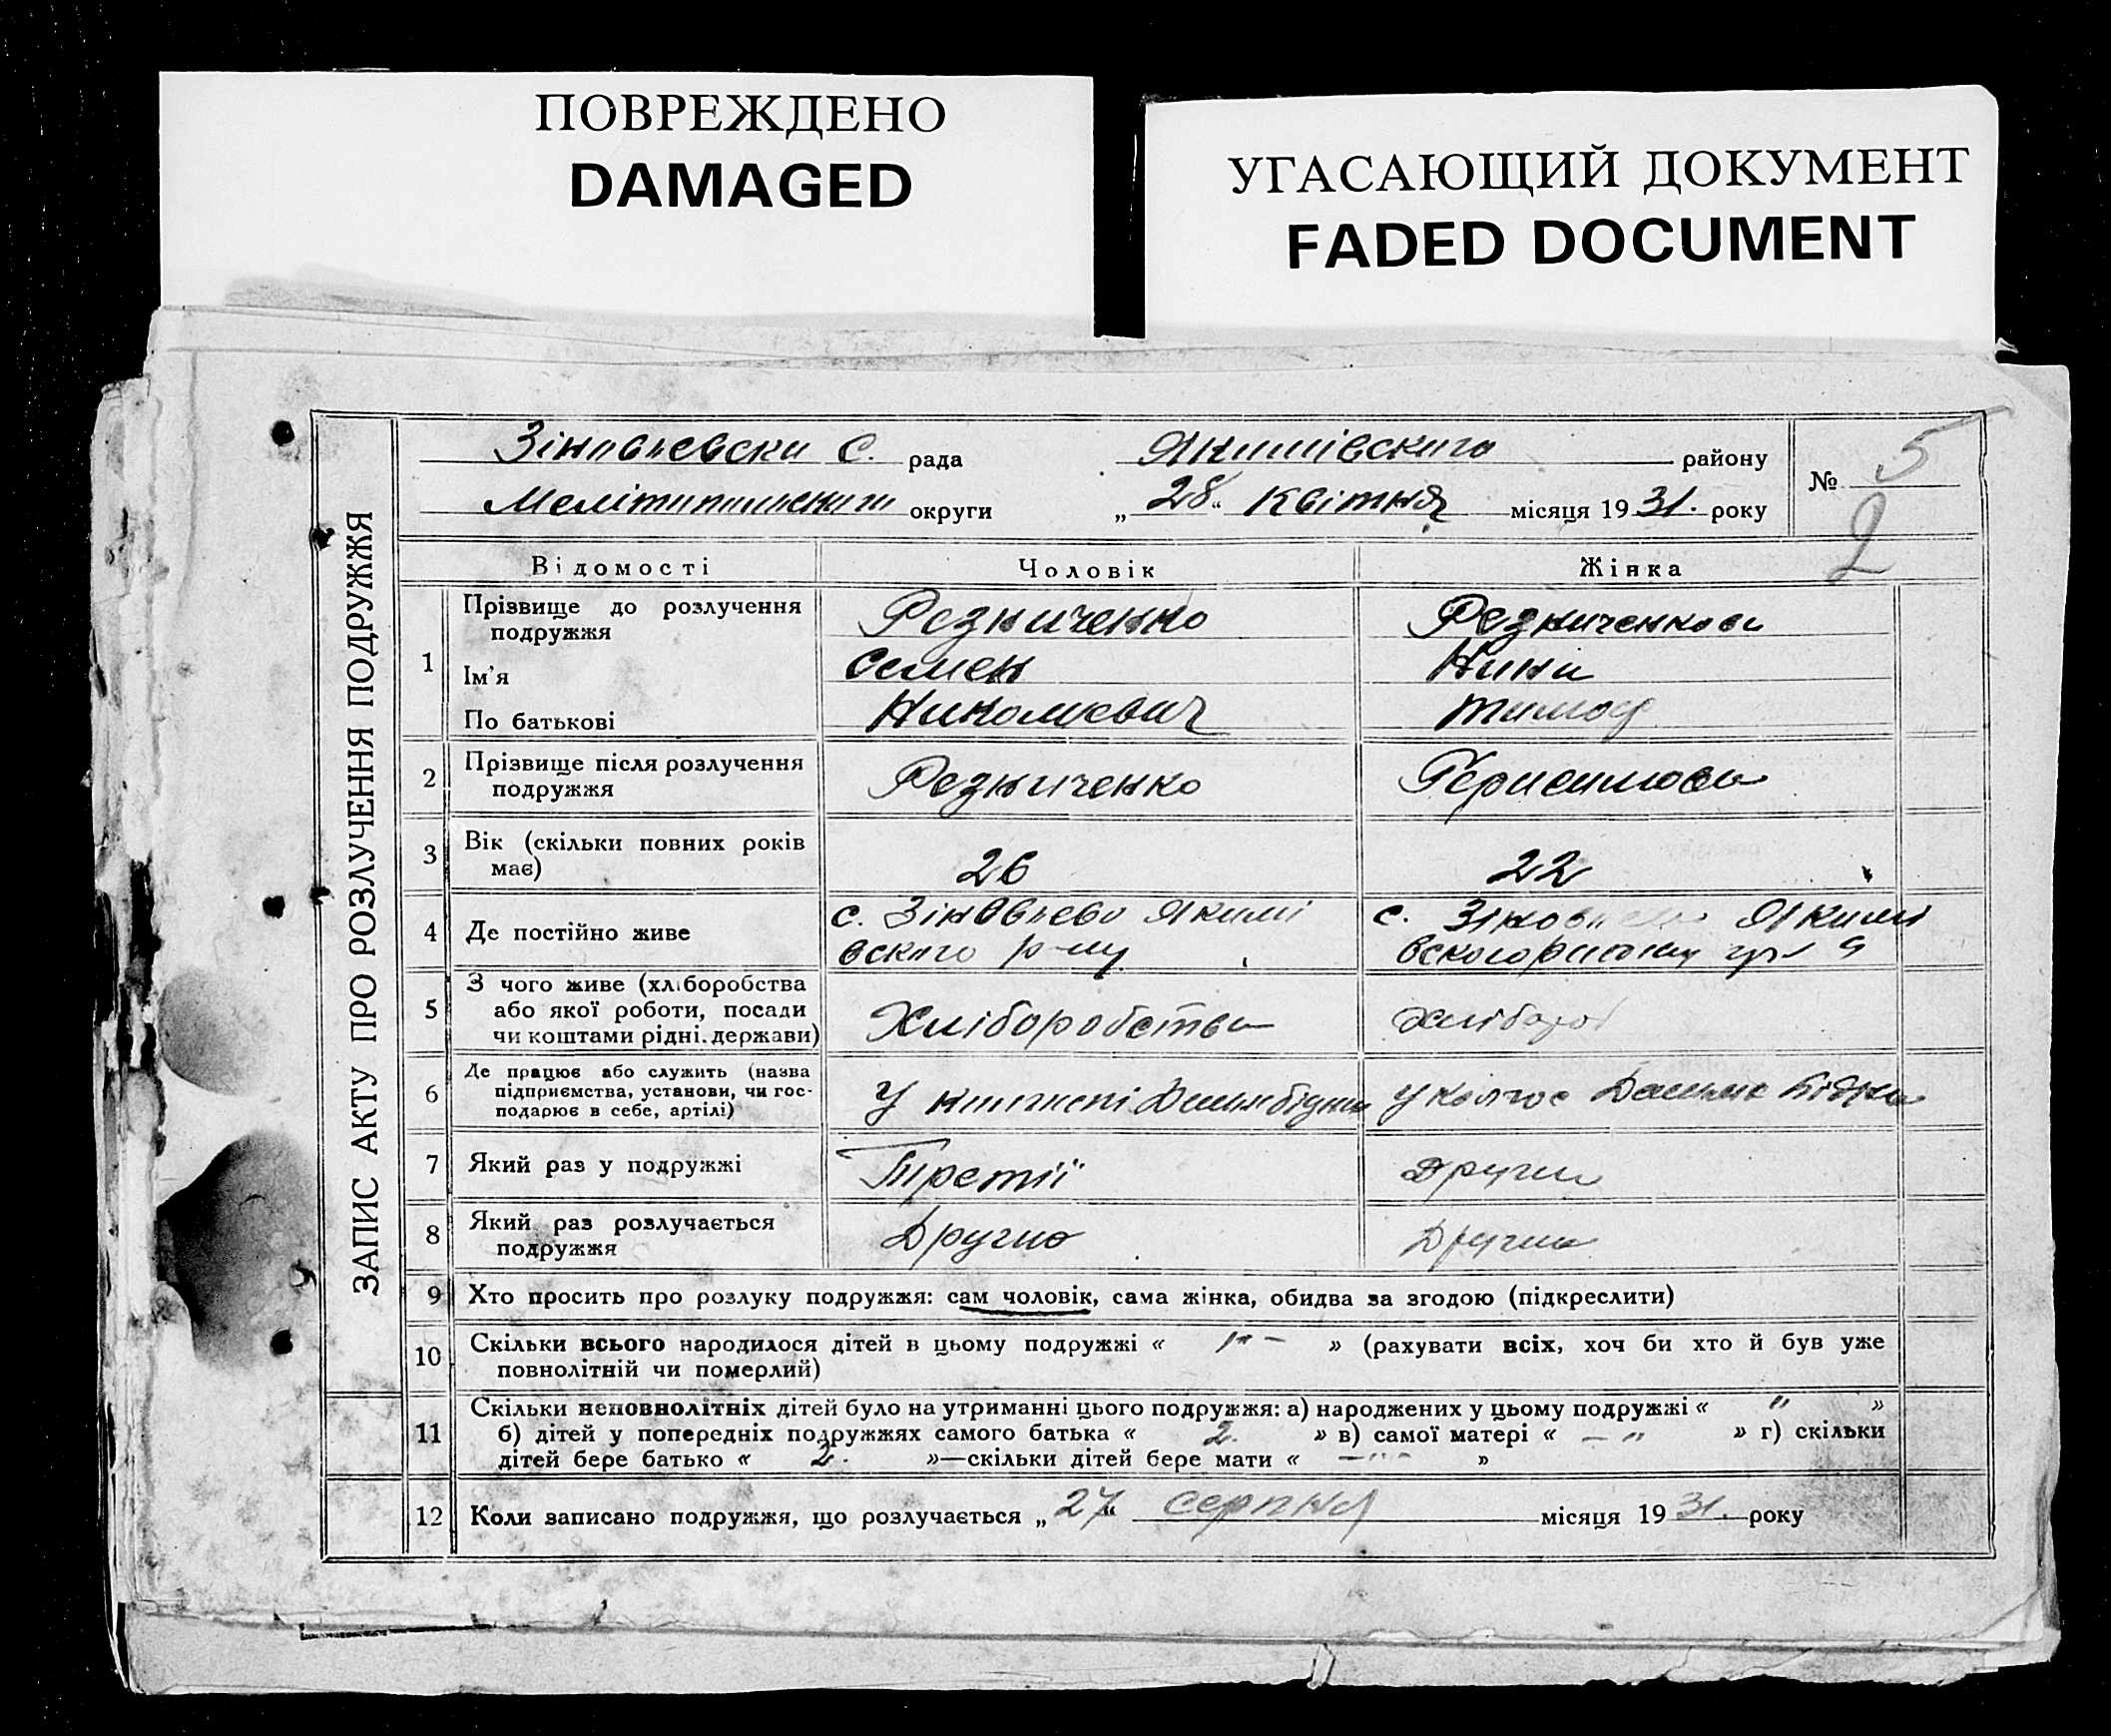 ПОВРЕЖДЕНО
DAMAGED
УГАСАЮЩИЙ ДОКУМЕНТ
FADED DOCUMENT
ЗАПИС АКТУ ПРО РОЗЛУЧЕННЯ ПОДРУЖЖЯ
Зіновьевска с. рада Якимівского району № 5
Мелітопільского округи „ 28 “ Квітня місяця 1931. року
2
Відомості Чоловік Жінка
1 Прізвище до розлучення подружжя Резниченко Резниченкова
Ім'я Семен Нина
По батькові Николаевич Тимоф
2 Прізвище після розлучення подружжя Резниченко Герасимова
3 Вік (скільки повних років має) 26 22
4 Де постійно живе с. Зіновьево Якимі с. Зіновьево Якимі
вского р-ну вского району
5 З чого живе (хліборобства або якої роботи, посади чи коштами рідні, держави) Хліборобства хлібороб
6 Де працює або служить (назва підприємства, установи, чи господарює в себе, артілі) У Бідна У колгос Бідна
7 Який раз у подружжі Третій Други
8 Який раз розлучається подружжя Друга Друга
9 Хто просить про розлуку подружжя: сам чоловік, сама жінка, обидва за згодою (підкреслити)
10 Скільки всього народилося дітей в цьому подружжі « – » (рахувати всіх, хоч би хто й був уже
повнолітній чи померлий)
11 Скільки неповнолітніх дітей було на утриманні цього подружжя: а) народжених у цьому подружжі « " »
б) дітей у попередніх подружжях самого батька « 2. » в) самої матері « — " » г) скільки
дітей бере батько « 2. »—скільки дітей бере мати « — " — »
12 Коли записано подружжя, що розлучається „ 27 “ серпня місяця 1931. року